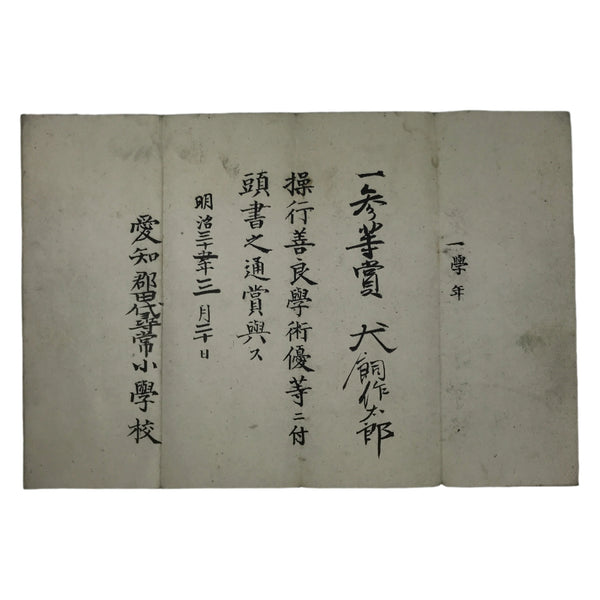 一學年
一參等賞 犬飼作太郎
操行善良學術優等ニ付
頭書之通賞與ス
明治三十五年三月二十日
愛知郡田代尋常小學校